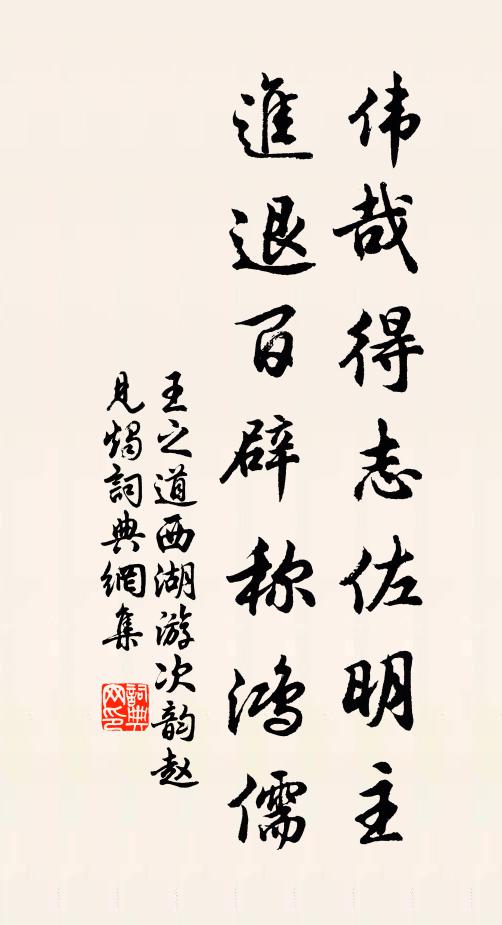 伟哉得志佐明主
進退百辟称鸿儒
王之道西湖游次韵赵
見燭詞典網集
詞典网印